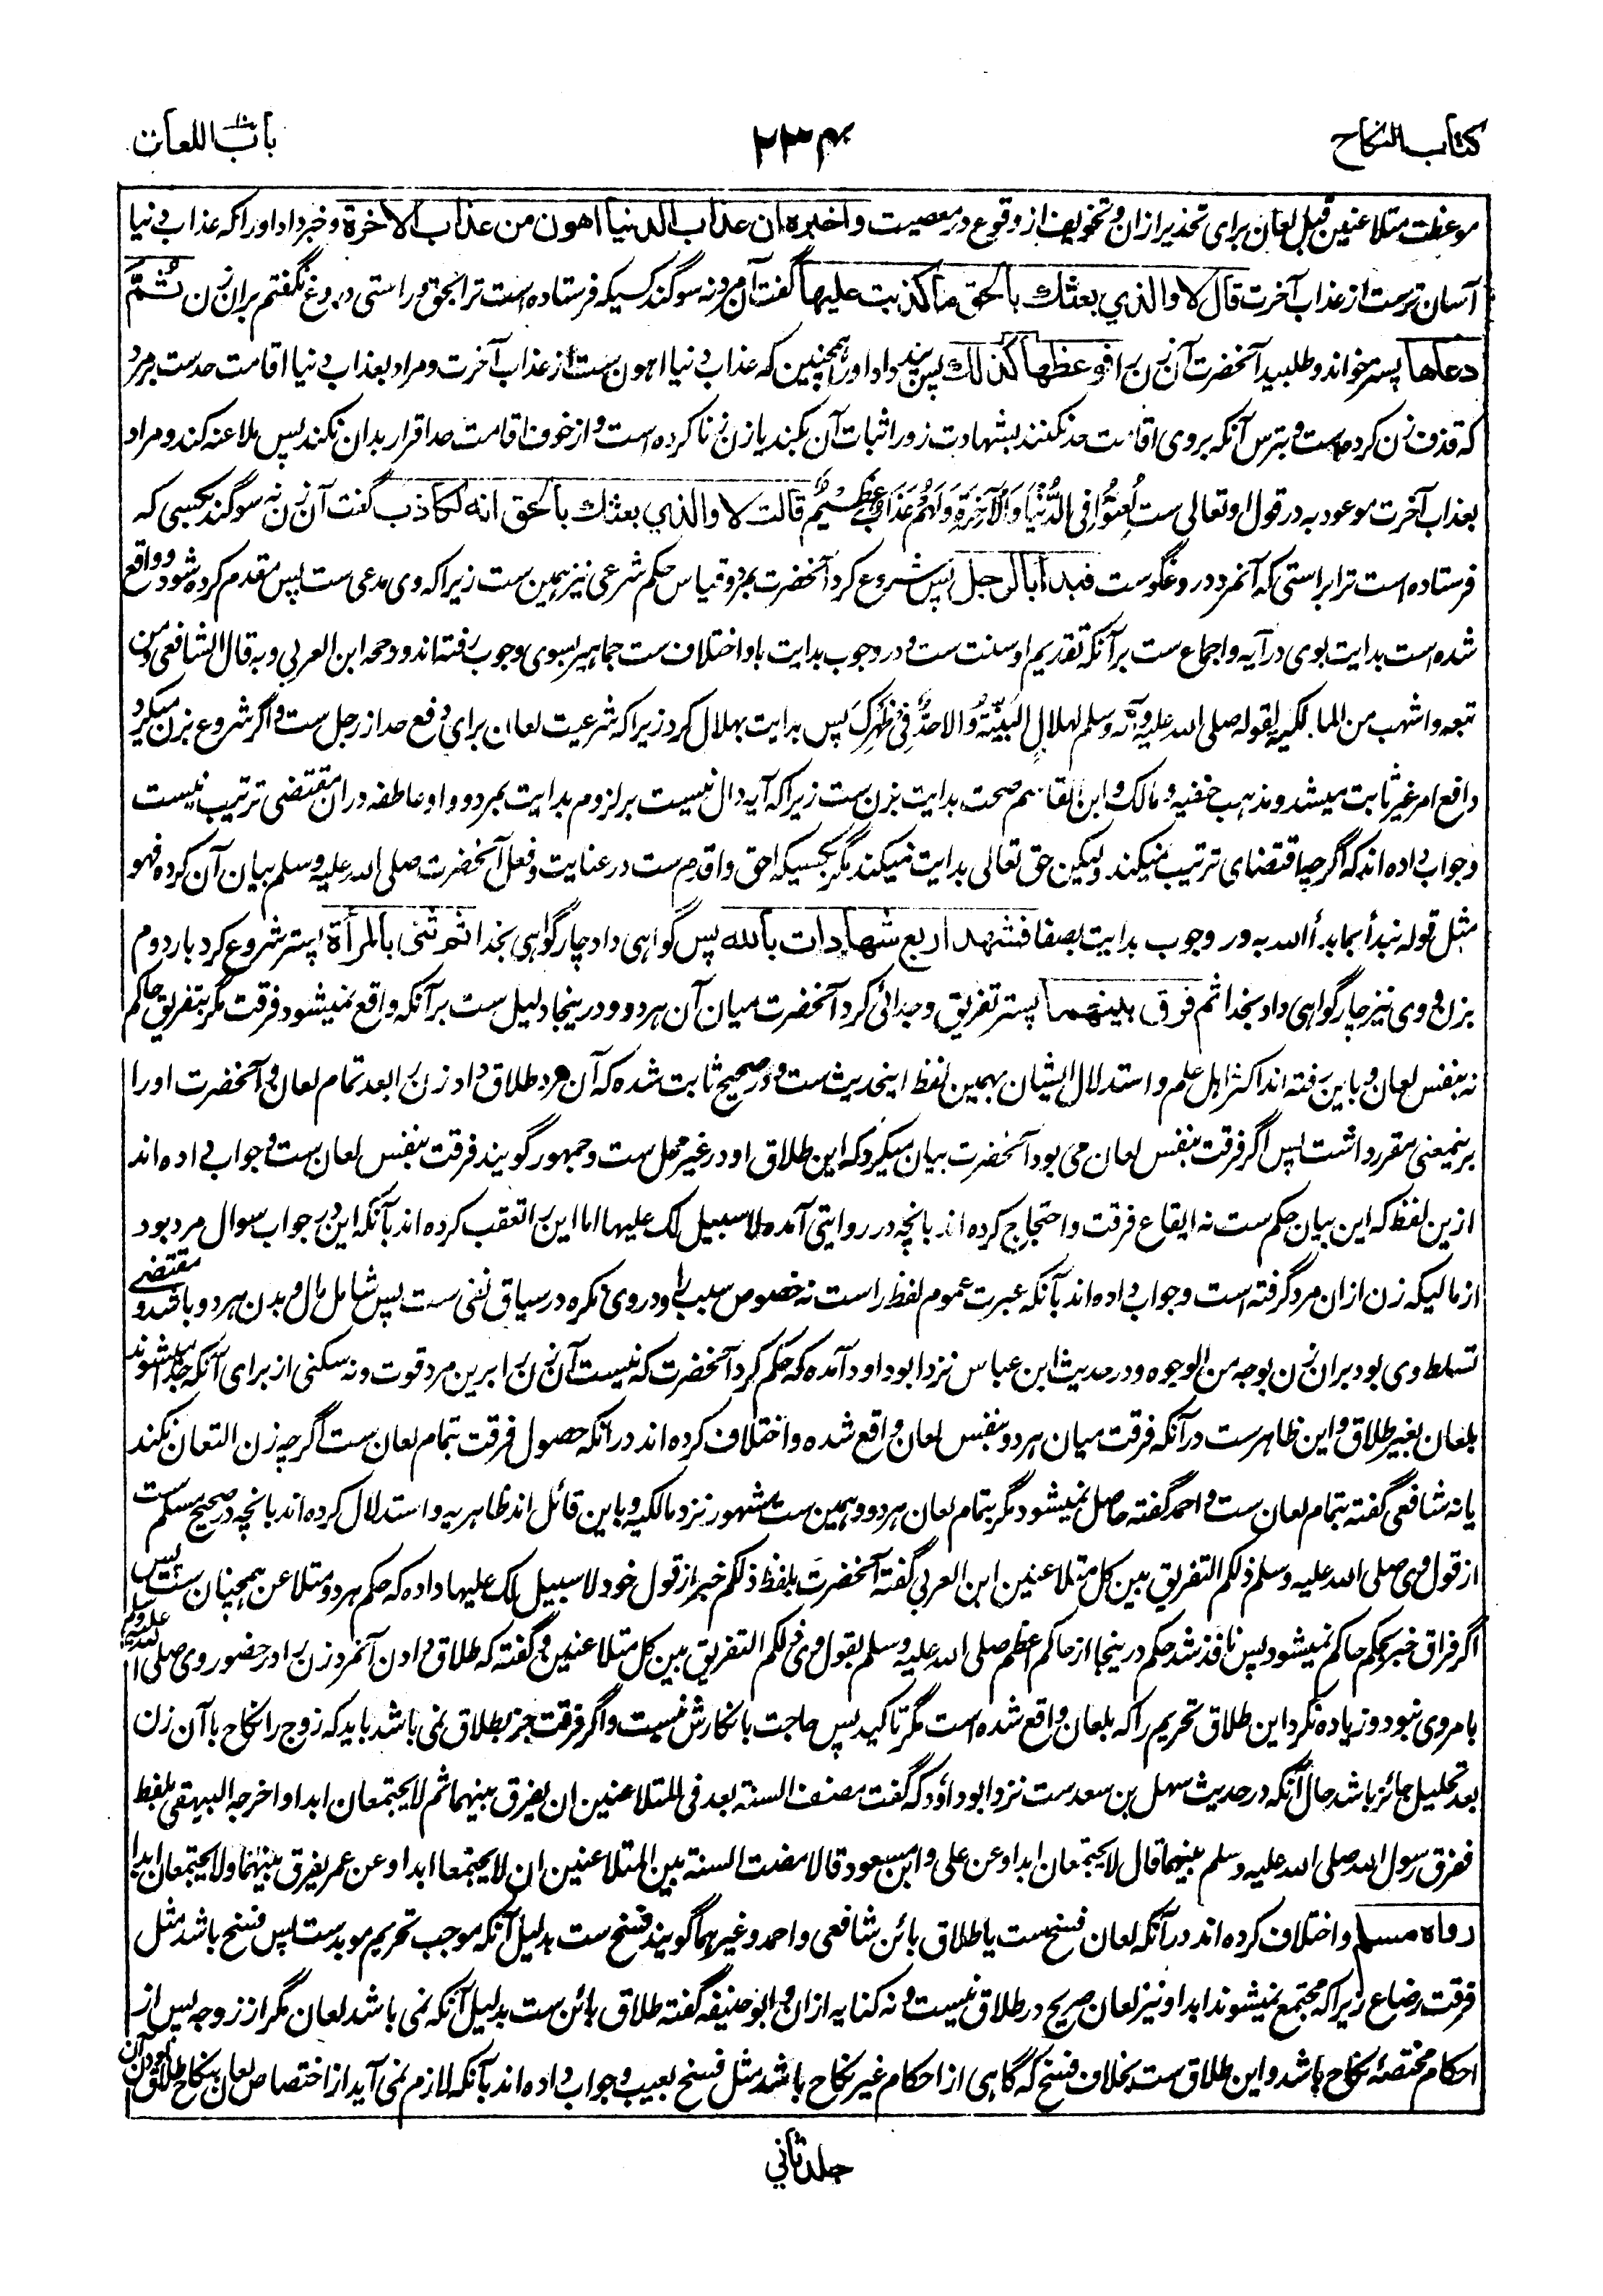 کتاب النکاح
۲۳۴
باب اللعان
موعظت متلاعنین قبل لعان برای تحذیر ازان و تخویف از وقوع در معصیت واخبره ان عذاب الدنیا اهون من عذاب الاخرة و خبر داد او را که عذاب دنیا
آسان ترست از عذاب آخرت قال لا والذي بعثك بالحق ما کذبت علیها گفت آن مرد نه سوگند کسیکه فرستاده است ترا بحق و راستی دروغ نگفتم بران زن ثُمَّ
دعاها پستر خواند و طلبید آنحضرت آن زن را فوعظها کذلك پس پند داد او را همچنین که عذاب دنیا اهون ست از عذاب آخرت و مراد بعذاب دنیا اقامت حدست بر مرد
که قذف زن کرده است و بترس آنکه بروی اقامت حد نکنند بشهادت زور اثبات آن بکند یا زن زنا کرده است و از خوف اقامت حد اقرار بدان نکند پس ملاعنه کند و مراد
بعذاب آخرت موعود به در قول او تعالی ست لُعِنُوْا فِی الدُّنْیَا وَالْآخِرَةِ وَلَهُمْ عَذَابٌ عَظِیْمٌ قالت لا والذي بعثك بالحق انه لکاذب گفت آن زن نه سوگند بکسی که
فرستاده است ترا براستی که آنمرد دروغگوست فبدأ بالرجل پس شروع کرد آنحضرت بمرد و قیاس حکم شرعی نیز همین ست زیرا که وی مدعی ست پس مقدم کرده شود و واقع
شده است بدایت بوی در آیه و اجماع ست بر آنکه تقدیم او سنت ست و در وجوب بدایت باو اختلاف ست جماهیر بسوی وجوب رفته اند و صححه ابن العربی و به قال الشافعی ومن
تبعه واشهب من المالکیه لقوله صلی الله علیه وآله وسلم لهلال البَیِّنَةُ وَالا حَدٌّ فِیْ ظَهْرِكَ پس بدایت بهلال کرد زیرا که شرعیت لعان برای دفع حد از رجل ست و اگر شروع بزن میکرد
دافع امر غیر ثابت میشد و مذهب حنفیه و مالک و ابن القاسم صحت بدایت بزن ست زیرا که آیه دال نیست بر لزوم بدایت بمرد و واو عاطفه دران مقتضی ترتیب نیست
و جواب داده اند که اگرچه اقتضای ترتیب نمیکند ولیکن حق تعالی بدایت نمیکند مگر بکسیکه احق و اقدم ست در عنایت و فعل آنحضرت صلی الله علیه وسلم بیان آن کرده فهو
مثل قوله نبدأ بما بدأ الله به در وجوب بدایت بصفا فشهد اربع شهادات بالله پس گواهی داد چار گواهی بخدا ثم ثنی بالمرأة پستر شروع کرد بار دوم
بزن و وی نیز چار گواهی داد بخدا ثم فرق بینهما پستر تفریق و جدائی کرد آنحضرت میان آن هر دو و درینجا دلیل ست بر آنکه واقع نمیشود فرقت مگر بتفریق حاکم
نه بنفس لعان و باین رفته اند اکثر اهل علم و استدلال ایشان بهمین لفظ اینحدیث ست و در صحیح ثابت شده که آن مرد طلاق داد زن را بعد تمام لعان و آنحضرت او را
برینمعنی مقرر داشت پس اگر فرقت بنفس لعان می بود آنحضرت بیان میکرد که این طلاق او در غیر محل ست و جمهور گویند فرقت بنفس لعان ست و جواب داده اند
ازین لفظ که این بیان حکم ست نه ایقاع فرقت و احتجاج کرده اند بانچه در روایتی آمده لا سبیل لک علیها اما این را تعقب کرده اند بآنکه این در جواب سوال مرد بود
از مالیکه زن ازان مرد گرفته است و جواب داده اند بآنکه عبرت عموم لفظ راست نه خصوص سبب را و در وی نکره در سیاق نفی ست پس شامل مال و بدن هر دو باشد و مقتضی
تسلط وی بود بران زن بوجه من الوجوه و در حدیث ابن عباس نزد ابو داود آمده که حکم کرد آنحضرت که نیست آن زن را برین مرد قوت و نه سکنی از برای آنکه جدا میشوند
بلعان بغیر طلاق و این ظاهرست در آنکه فرقت میان هر دو بنفس لعان واقع شده و اختلاف کرده اند در آنکه حصول فرقت بتمام لعان ست گرچه زن التعان نکند
یا نه شافعی گفته بتمام لعان ست و احمد گفته حاصل نمیشود مگر بتمام لعان هر دو و همین ست مشهور نزد مالکیه و باین قائل اند ظاهریه و استدلال کرده اند بانچه در صحیح مسلم ست
از قول وی صلی الله علیه وسلم ذلکم التفریق بین کل متلاعنین ابن العربی گفته آنحضرت بلفظ ذلکم خبر از قول خود لا سبیل لک علیها داده که حکم هر دو متلاعن همچنان ست پس
اگر فراق خبر بحکم حاکم نمیشود پس نافذ شد حکم درینجا از حاکم اعظم صلی الله علیه وسلم بقول وی ذلکم التفریق بین کل متلاعنین و گفته که طلاق دادن آنمرد زن را در حضور وی صلی الله علیه وآله وسلم
بامر وی نبود و زیاده نکرد این طلاق تحریم را که بلعان واقع شده است مگر تاکید پس حاجت بانکارش نیست و اگر فرقت جز بطلاق نمی باشد باید که زوج را نکاح با آن زن
بعد تحلیل جائز باشد حال آنکه در حدیث سهل بن سعد ست نزد ابو داؤد که گفت مضت السنة بعد فی المتلاعنین ان یفرق بینهما ثم لا یجتمعان ابدا و اخرجه البیهقی بلفظ
ففرق رسول الله صلی الله علیه وسلم بینهما قال لا یجتمعان ابدا و عن علی و ابن مسعود قالا مضت السنة بین المتلاعنین ان لا یجتمعا ابدا و عن عمر یفرق بینهما ولا یجتمعان ابدا
رواه مسلم و اختلاف کرده اند در آنکه لعان فسخ ست یا طلاق بائن شافعی و احمد و غیرهما گویند فسخ ست بدلیل آنکه موجب تحریم موبدست پس فسخ باشد مثل
فرقت رضاع زیرا که مجتمع نمیشوند ابدا و نیز لعان صریح در طلاق نیست و نه کنایه ازان و ابو حنیفه گفته طلاق بائن ست بدلیل آنکه نمی باشد لعان مگر از زوجه پس از
احکام مختصهٔ نکاح باشد و این طلاق ست بخلاف فسخ که گاهی از احکام غیر نکاح باشد مثل فسخ بعیب و جواب داده اند بآنکه لازم نمی آید از اختصاص لعان بنکاح طلاق بودن آن
جلد ثانی